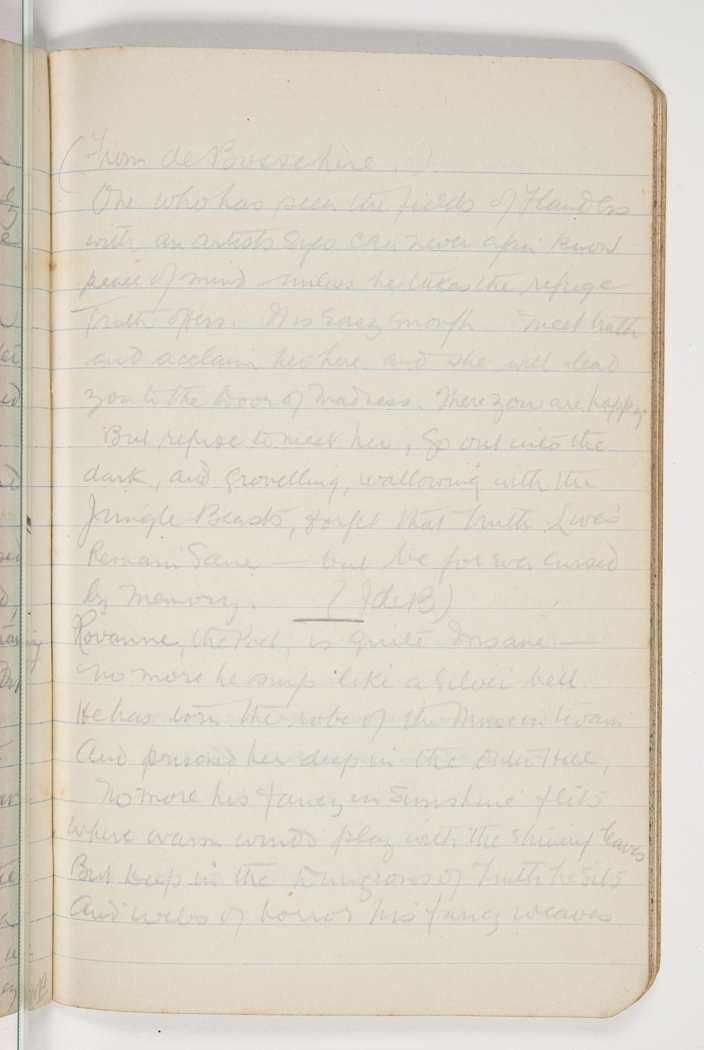 (From de Bosschère.)
One who has seen the fields of Flanders
with an artists eyes can never again know
peace of mind unless he takes the refuge
Truth offers. It is easy enough. Meet truth
and acclaim her here and she will lead
you to the Door of Madness. There you are happy
But refuse to meet her, Go out into the
dark, and grovelling, wallowing with the
Jungle Beasts, forget that truth Lives
Remain Sane — but be for ever cursed
by Memory. (J de B)
Rovanne, the Poet, is quite Insane —
No more he sings like a Silver bell
He has torn the robe of the Muse in twain
And prisoned her deep in the Outer Hell,
No more his fancy in Sunshine flits
where warm winds play with the shining leaves
But deep in the Dungeons of Truth he sits
And webs of horror his fancy weaves.